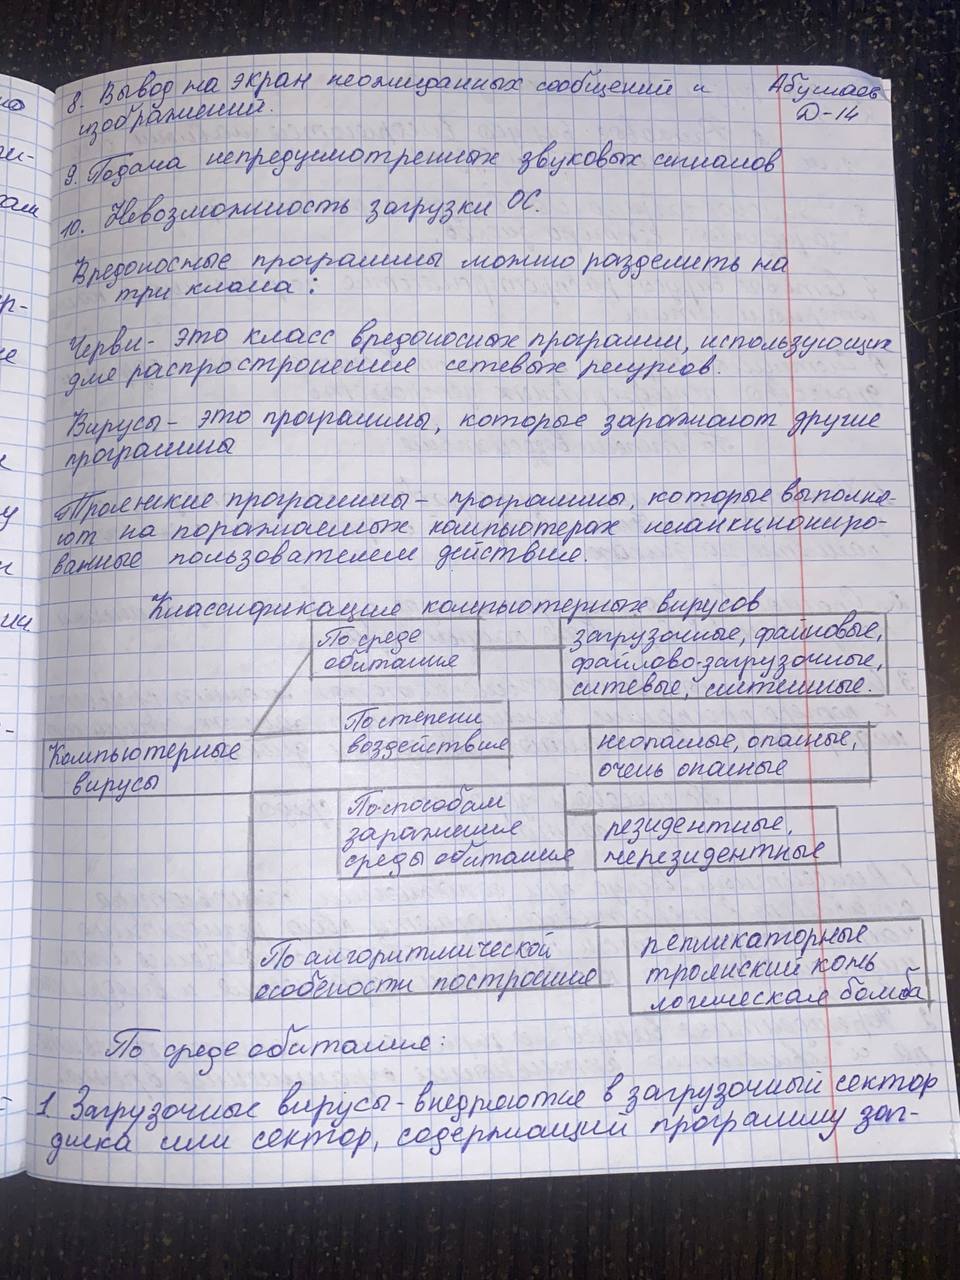 8. Вывод на экран неожиданных сообщений и
изображений.
Абушаев
Д-14
9. Подача непредусмотренных звуковых сигналов
10. Невозможность загрузки ОС.
Вредоностные программы можно разделить на
три класа:
Черви- это класс вредоносных программ, использующих
для распростронения сетевых ресурсов.
Вирусы- это программы, которые заражают другие
программы
Троянские программы- программы, которые выполня-
ют на поражаемых компьютерах несанкциониро-
ванные пользователем действие.
Классификация компьютерных вирусов
По среде
обитания
загрузочные, файловые,
файлово-загрузочные,
сетевые, системные.
По степени
воздействия
неопасные, опасные,
очень опасные
Компьютерные
вирусы
По способам
заражения
среды обитания
резидентные,
нерезидентные
По алгоритмической
особености построения
репликаторные
троянский конь
логическая бомба
По среде обитания:
1. Загрузочные вирусы- внедряются в загрузочный сектор
диска или сектор, содержащий программу заг-